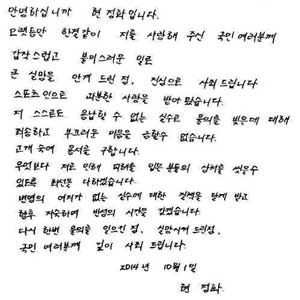 안녕하십니까 현 정화입니다.
오랫동안 한결같이 저를 사랑해 주신 국민 여러분께
갑작스럽고 불미스러운 일로
큰 실망을 안겨 드린 점, 진심으로 사죄 드립니다
스포츠인으로 과분한 사랑을 받아 왔습니다.
저 스스로도 용납할 수 없는 실수로 물의를 빚은데 대해
죄송하고 부끄러운 마음을 금할수 없습니다.
고개 숙여 용서를 구합니다.
무엇보다 저로 인해 피해를 입은 분들의 상처를 씻을수
있도록 최선을 다하겠습니다.
변명의 여지가 없는 실수에 대한 질책을 달게 받고
향후 자숙하며 반성의 시간을 갖겠습니다.
다시 한번 물의를 일으킨 점, 실망시켜 드린점,
국민 여러분께 깊이 사죄 드립니다.
2014년 10월 1일
현 정화.